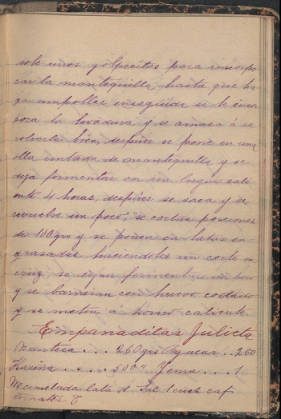 unos golpecitos para incorpo
rar la mantequilla, hasta que ha
gan ampollas enseguida se le
la levadura y se amasa ó se
bien, después se pone en una
olla untada de mantequilla y se
deja fermentar en un lugar cali
ente 4 horas, después se saca y se
un poco, se cortan porciones
de 110 grs y se ponen en latas en
grasadas haciendoles un corte en
cruz, se dejan fermentar
y se barnizan con huevo colado
y se meten á horno caliente.
Empanaditas Julieta
Manteca . . . 260 grs Azucar . . 260
Harina . . . 500 " Yema . . . 1
Mermelada lata de Sal 1